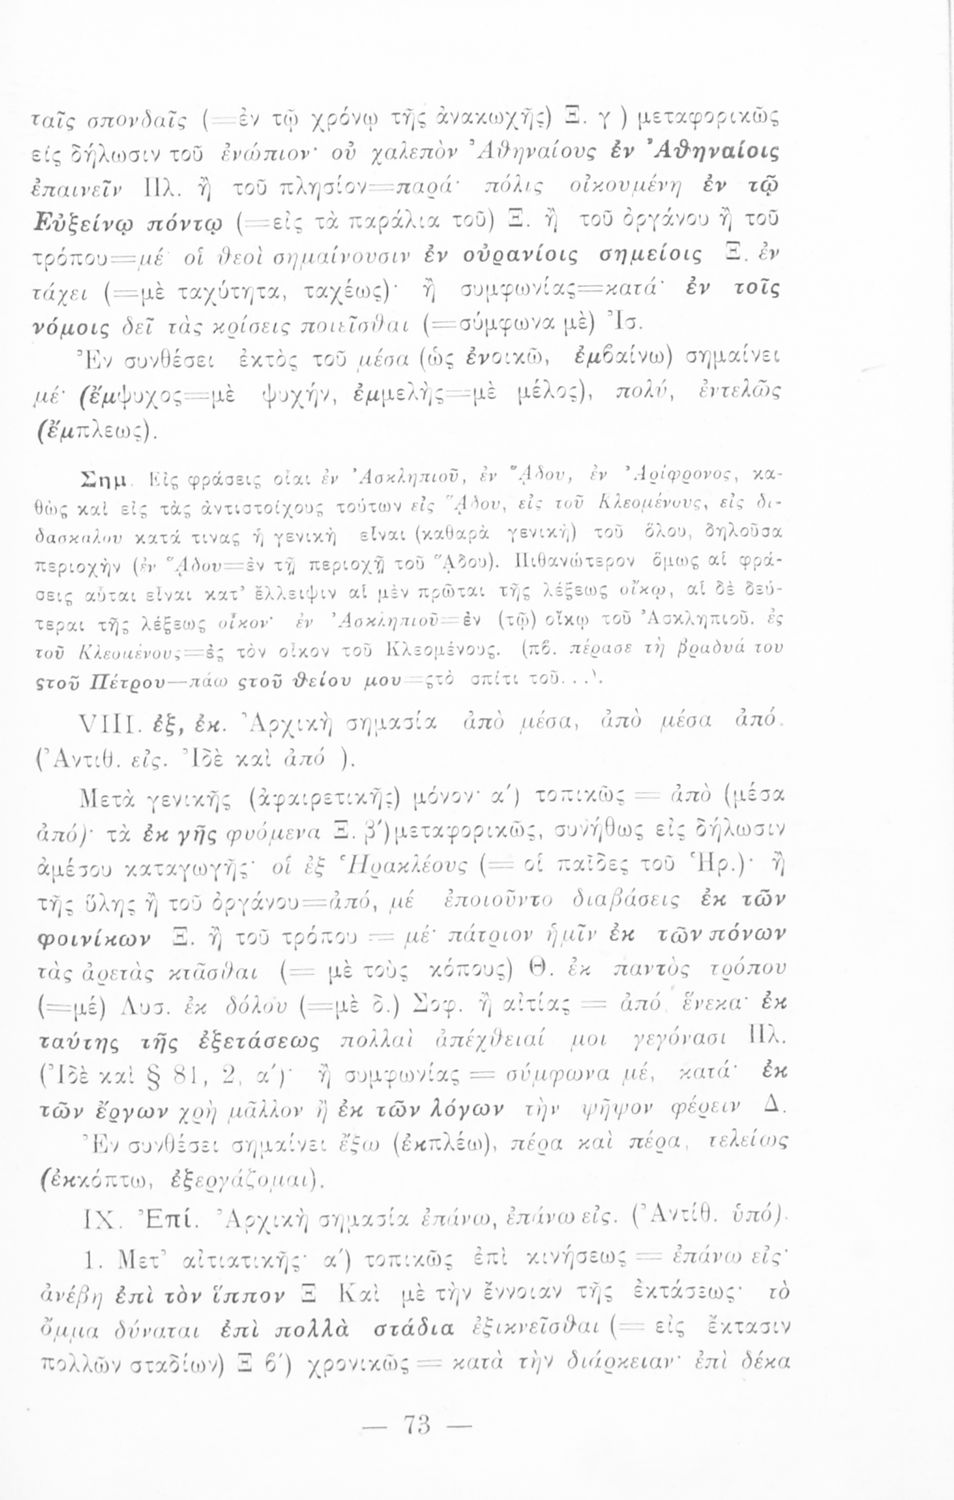 ταῖς σπονδαῖς (=ἐν τῷ χρόνῳ τῆς ἀνακωχῆς) Ξ. γ ) μεταφορικῶς
εἰς δήλωσιν τοῦ ἐνώπιον· οὐ χαλεπὸν Ἀθηναίους ἐν Ἀθηναίοις
ἐπαινεῖν Πλ. ἢ τοῦ πλησίον=παρά· πόλις οἰκουμένη ἐν τῷ
Εὐξείνῳ πόντῳ (=εἰς τὰ παράλια τοῦ) Ξ. ἢ τοῦ ὀργάνου ἢ τοῦ
τρόπου=μέ· οἱ θεοὶ σημαίνουσιν ἐν οὐρανίοις σημείοις Ξ. ἐν
τάχει (=μὲ ταχύτητα, ταχέως)· ἢ συμφωνίας=κατά· ἐν τοῖς
νόμοις δεῖ τὰς κρίσεις ποιεῖσθαι (=σύμφωνα μὲ) Ἰσ.
Ἐν συνθέσει ἐκτὸς τοῦ μέσα (ὡς ἐνοικῶ, ἐμβαίνω) σημαίνει
μέ· (ἔμψυχος=μὲ ψυχήν, ἐμμελὴς=μὲ μέλος), πολύ, ἐντελῶς
(ἔμπλεως).
Σημ. Εἰς φράσεις οἷαι ἐν Ἀσκληπιοῦ, ἐν Ἅδου, ἐν Ἀρίφρονος, κα-
θὼς καὶ εἰς τὰς ἀντιστοίχους τούτων εἰς Ἅδου, εἰς τοῦ Κλεομένους, εἰς δι-
δασκάλου κατά τινας ἡ γενικὴ εἶναι (καθαρὰ γενική) τοῦ ὅλου, δηλοῦσα
περιοχὴν (ἐν Ἅδου=ἐν τῇ περιοχῇ τοῦ Ἅδου). Πιθανώτερον ὅμως αἱ φρά-
σεις αὗται εἶναι κατ’ ἔλλειψιν αἱ μὲν πρῶται τῆς λέξεως οἴκῳ, αἱ δὲ δεύ-
τεραι τῆς λέξεως οἶκον· ἐν Ἀσκληπιοῦ=ἐν (τῷ) οἴκῳ τοῦ Ἀσκληπιοῦ. ἐς
τοῦ Κλεομένους=ἐς τὸν οἶκον τοῦ Κλεομένους. (πβ. πέρασε τὴ βραδυά του
ςτοῦ Πέτρου—πάω ςτοῦ θείου μου=ςτὸ σπίτι τοῦ...).
VIII. ἐξ, ἐκ. Ἀρχικὴ σημασία ἀπὸ μέσα, ἀπὸ μέσα ἀπό.
(Ἀντιθ. εἰς. Ἰδὲ καὶ ἀπό ).
Μετὰ γενικῆς (ἀφαιρετικῆς) μόνον· α΄) τοπικῶς = ἀπὸ (μέσα
ἀπό)· τὰ ἐκ γῆς φυόμενα Ξ. β΄)μεταφορικῶς, συνήθως εἰς δήλωσιν
ἀμέσου καταγωγῆς· οἱ ἐξ Ἡρακλέους (= οἱ παῖδες τοῦ Ἡρ.)· ἢ
τῆς ὕλης ἢ τοῦ ὀργάνου=ἀπό, μέ ἐποιοῦντο διαβάσεις ἐκ τῶν
φοινίκων Ξ. ἢ τοῦ τρόπου = μέ· πάτριον ἡμῖν ἐκ τῶν πόνων
τὰς ἀρετὰς κτᾶσθαι (= μὲ τοὺς κόπους) Θ. ἐκ παντὸς τρόπου
(=μέ) Λυσ. ἐκ δόλου (=μὲ δ.) Σοφ. ἢ αἰτίας = ἀπό, ἕνεκα· ἐκ
ταύτης τῆς ἐξετάσεως πολλαὶ ἀπέχθειαί μοι γεγόνασι Πλ.
(Ἰδὲ καὶ § 81, 2, α΄)· ἢ συμφωνίας = σύμφωνα μέ, κατά· ἐκ
τῶν ἔργων χρὴ μᾶλλον ἢ ἐκ τῶν λόγων τὴν ψῆφον φέρειν Δ.
Ἐν συνθέσει σημαίνει ἔξω (ἐκπλέω), πέρα καὶ πέρα, τελείως
(ἐκκόπτω, ἐξεργάζομαι).
IX. Ἐπί. Ἀρχικὴ σημασία ἐπάνω, ἐπάνω εἰς. (Ἀντίθ. ὑπό).
1. Μετ’ αἰτιατικῆς· α΄) τοπικῶς ἐπὶ κινήσεως = ἐπάνω εἰς·
ἀνέβη ἐπὶ τὸν ἵππον Ξ Καὶ μὲ τὴν ἔννοιαν τῆς ἐκτάσεως· τὸ
ὄμμα δύναται ἐπὶ πολλὰ στάδια ἐξικνεῖσθαι (= εἰς ἔκτασιν
πολλῶν σταδίων) Ξ β΄) χρονικῶς = κατὰ τὴν διάρκειαν· ἐπὶ δέκα
— 73 —